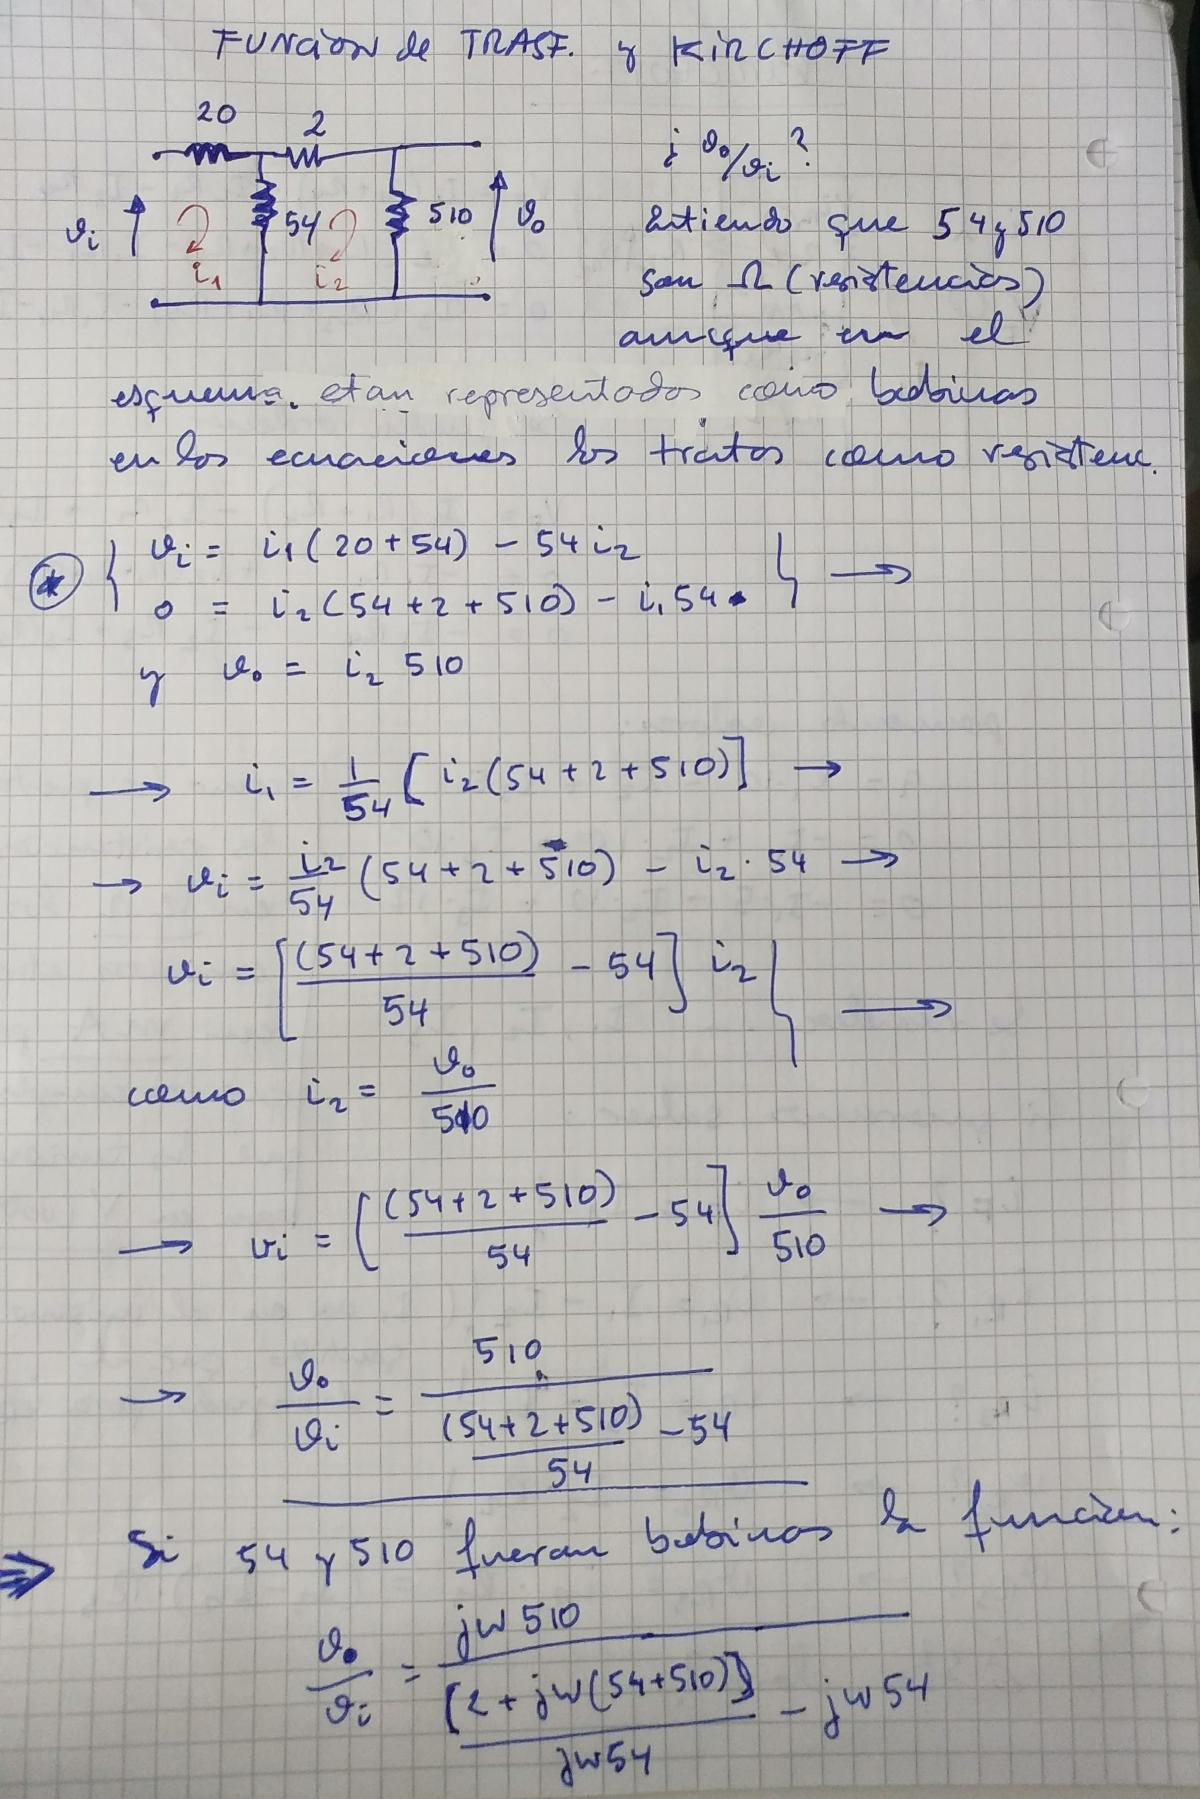 FUNCION de TRASF. y KIRCHOFF
20
2
¿ v₀/vᵢ ?
vᵢ
54
510
v₀
i₁
i₂
Entiendo que 54 y 510
son Ω (resistencias)
aunque en el
esquema. etan representados como bobinas
en los ecuaciones los tratas como resistenc.
* { vᵢ = i₁(20+54) - 54 i₂
0 = i₂(54+2+510) - i₁ 54 } →
y v₀ = i₂ 510
→ i₁ = 1/54 [ i₂(54+2+510)] →
→ vᵢ = i₂/54 (54+2+510) - i₂·54 →
vᵢ = [(54+2+510)/54 - 54] i₂ } →
como i₂ = v₀/510
→ vᵢ = [(54+2+510)/54 - 54] v₀/510 →
→ v₀/vᵢ = 510/((54+2+510)/54 - 54)
⇒ Si 54 y 510 fueran bobinas la funcion:
v₀/vᵢ = jw510/([2+jw(54+510)]/jw54 - jw54)